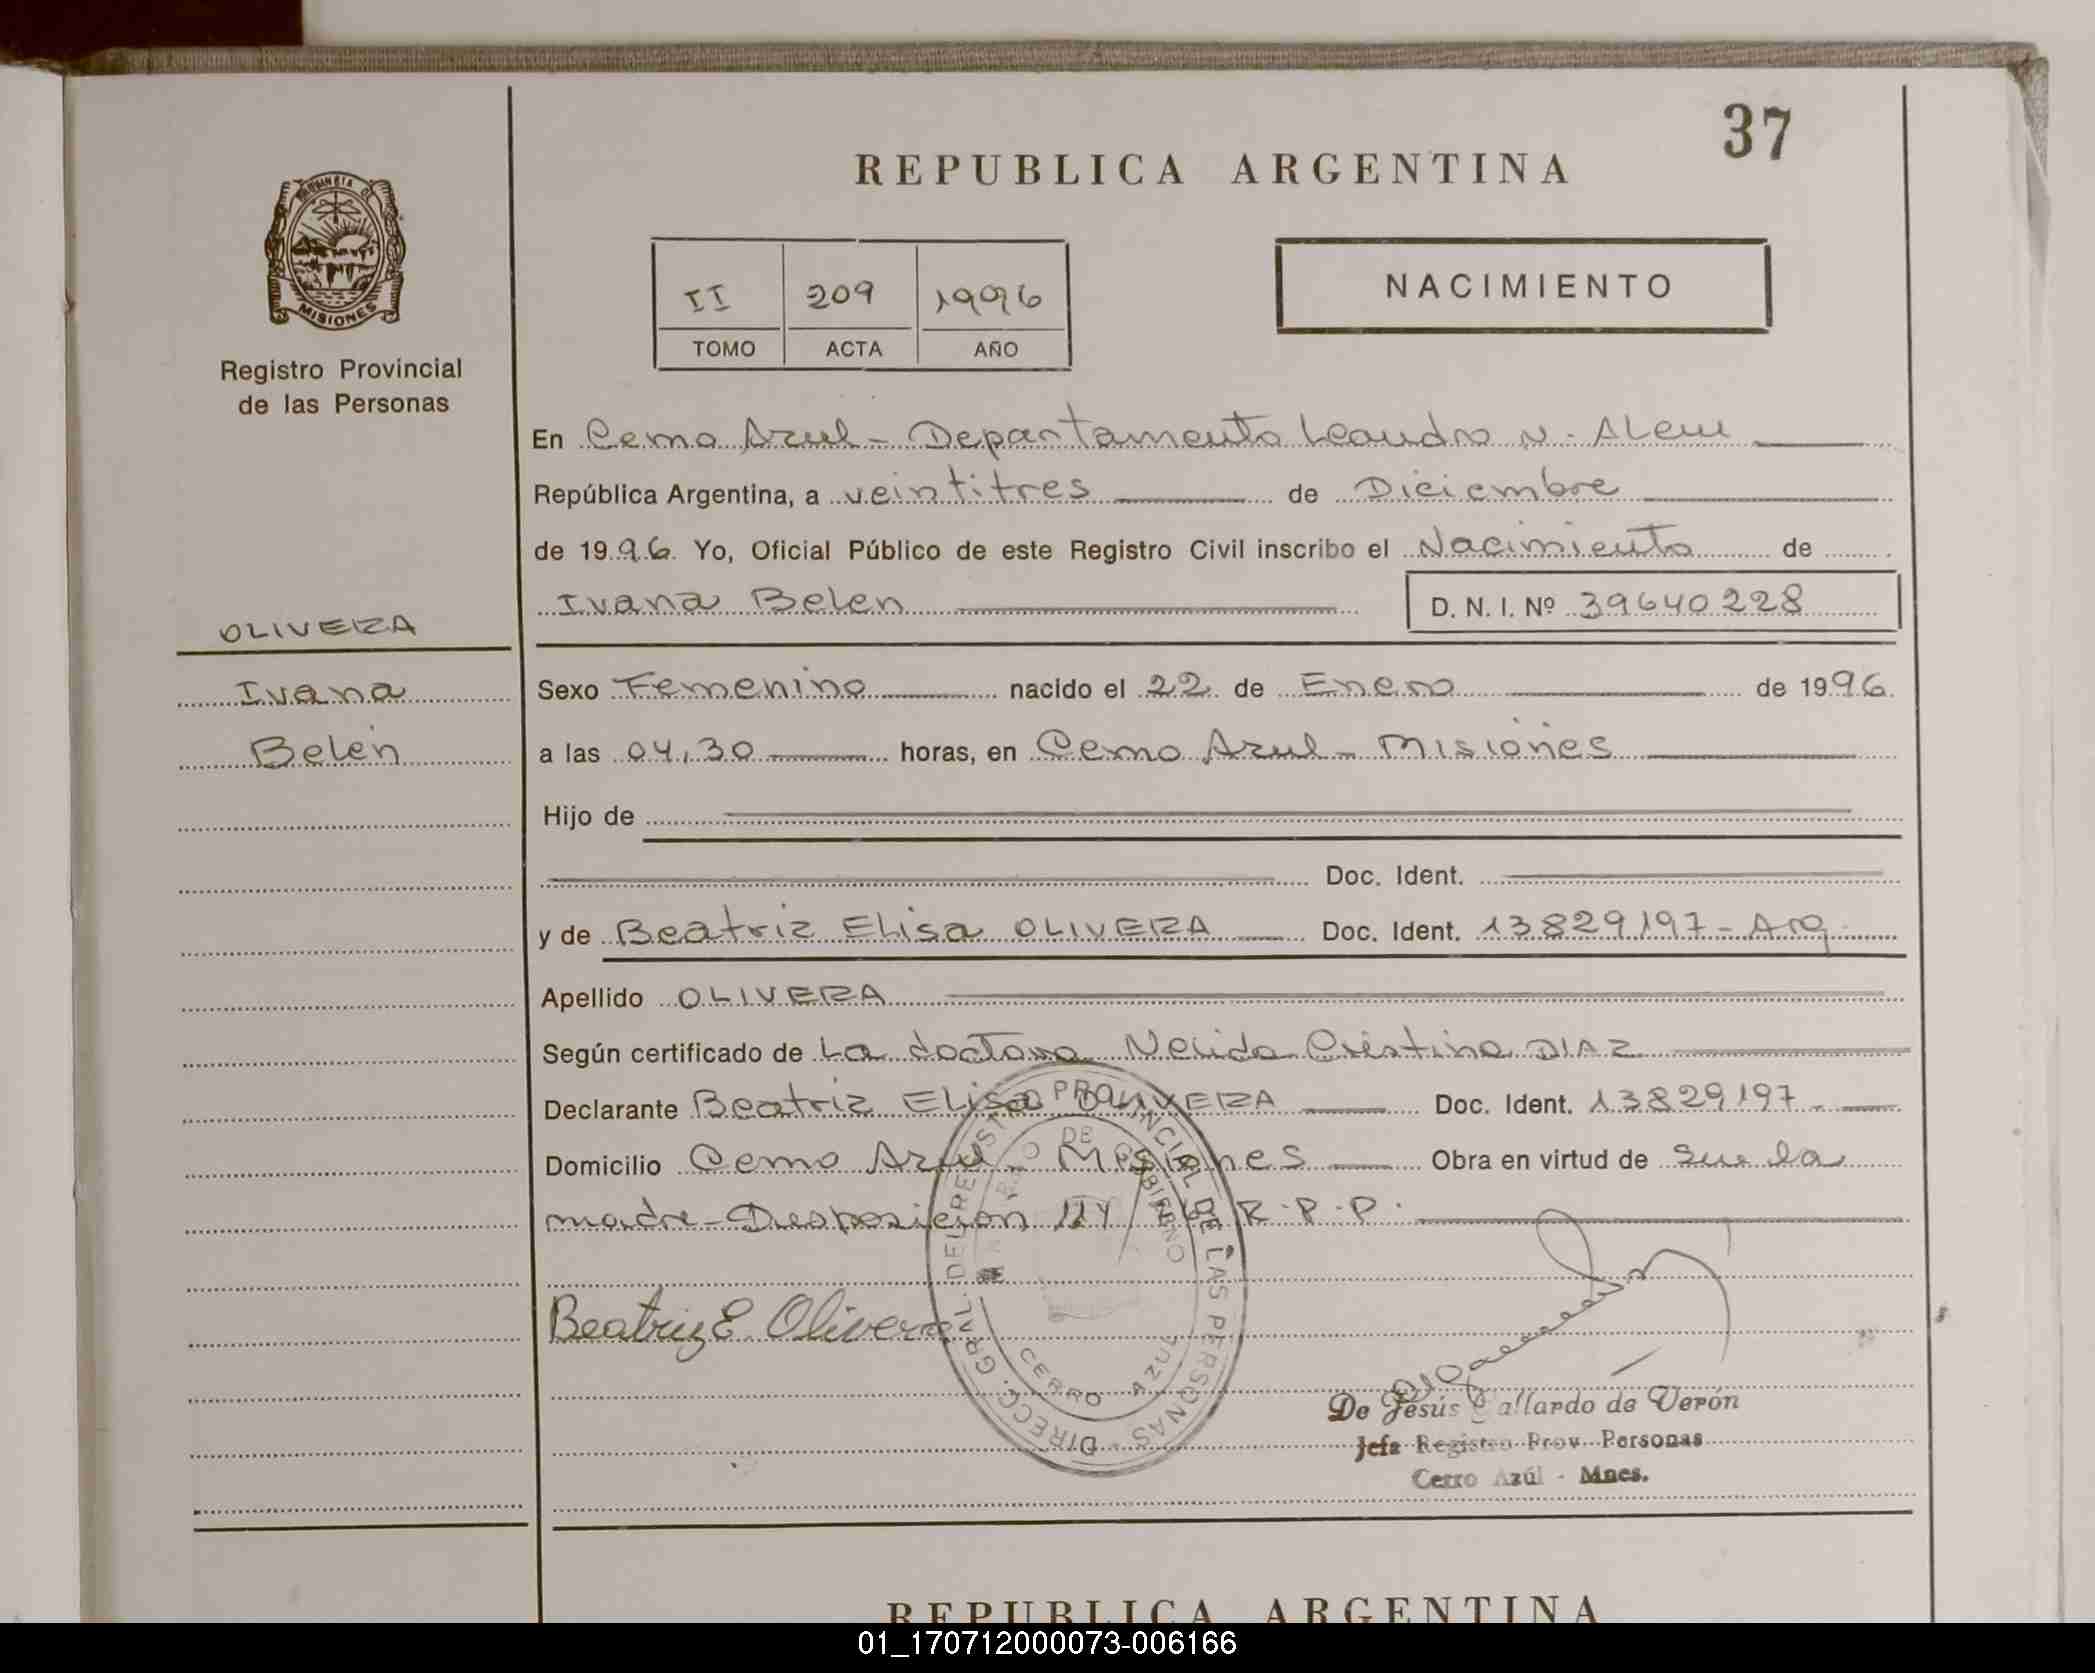 37
REPUBLICA ARGENTINA
PROVINCIA DE
MISIONES
Registro Provincial
de las Personas
II 209 1996
TOMO ACTA AÑO
NACIMIENTO
En Cerro Azul - Departamento Leandro N. Alem
República Argentina, a veintitres de Diciembre
de 1996 Yo, Oficial Público de este Registro Civil inscribo el Nacimiento de
Ivana Belen D. N. I. Nº 39640228
OLIVERA
Ivana
Belen
Sexo Femenino nacido el 22 de Enero de 1996
a las 04,30 horas, en Cerro Azul - Misiones
Hijo de
Doc. Ident.
y de Beatriz Elisa OLIVERA Doc. Ident. 13829197 - Arg
Apellido OLIVERA
Según certificado de La doctora Nelida Cristina DIAZ
Declarante Beatriz Elisa OLIVERA Doc. Ident. 13829197 -
Domicilio Cerro Azul - Misiones Obra en virtud de Ser la
madre - Disposicion R.P.P.
Beatriz E Olivera
DIRECC. GRAL. DEL REGISTRO PROVINCIAL DE LAS PERSONAS -
DE GOBIERNO
CERRO AZUL
De Jesús Gallardo de Verón
Jefa Registro Prov. Personas
Cerro Azúl - Mnes.
REPUBLICA ARGENTINA
01_170712000073-006166